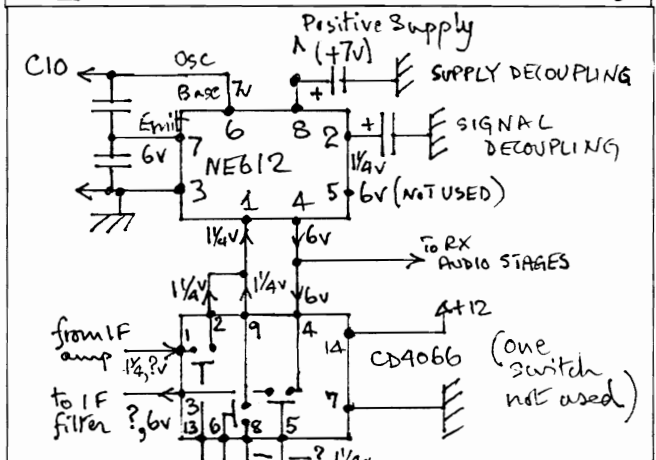 Positive Supply
(+7v)
C10
Osc
Base
7v
+
SUPPLY DECOUPLING
Emit
7
6
8
2
+
SIGNAL
DECOUPLING
6v
NE612
1¼v
3
5
6v (NOT USED)
1
4
1¼v
6v
To RX
AUDIO STAGES
1¼v
1¼v
6v
+12
from IF
amp
1
2
9
4
14
CD4066
(one
switch
not used)
1¼, ?v
to IF
filter
?, 6v
3
13
6
8
5
7
? 1¼v